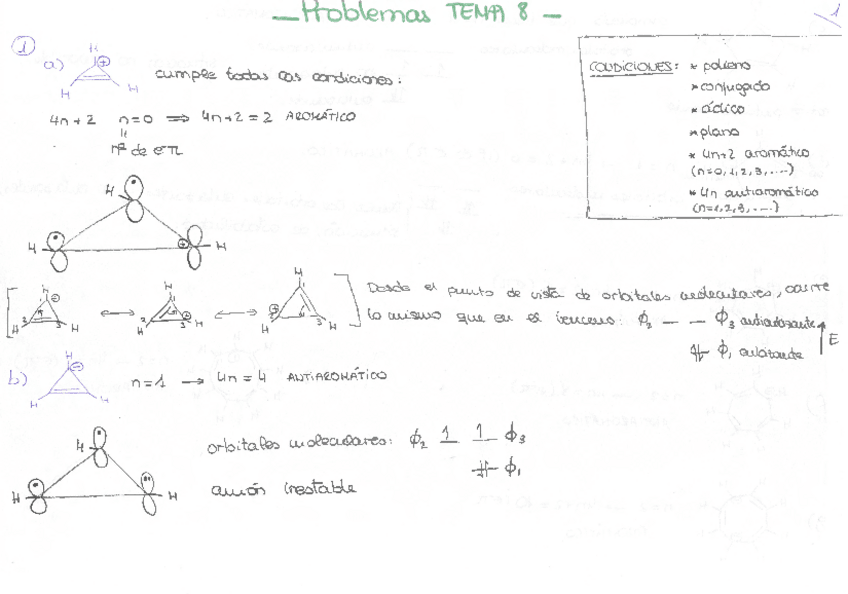 Problemas TEMA 8
1
CONDICIONES: * polieno
* conjugado
* cíclico
* plano
* 4n+2 aromático
(n=0,1,2,3,....)
* 4n antiaromático
(n=1,2,3,....)
1
a) H ⊕ H H cumple todas las condiciones:
4n+2 n=0 ⟹ 4n+2=2 AROMÁTICO
nº de e⁻π
H
H ⊕ H
[ H ⊕ H H ⟷ H ⊕ H H ⟷ H ⊕ H H ] Desde el punto de vista de orbitales moleculares, ocurre
lo mismo que en el benceno: ϕ2 — — ϕ3 antienlazante
ϕ1 enlazante E
b) H ⊖ H H n=1 ⟶ 4n=4 ANTIAROMÁTICO
H
H H
orbitales moleculares: ϕ2 1 1 ϕ3
ϕ1
anión inestable